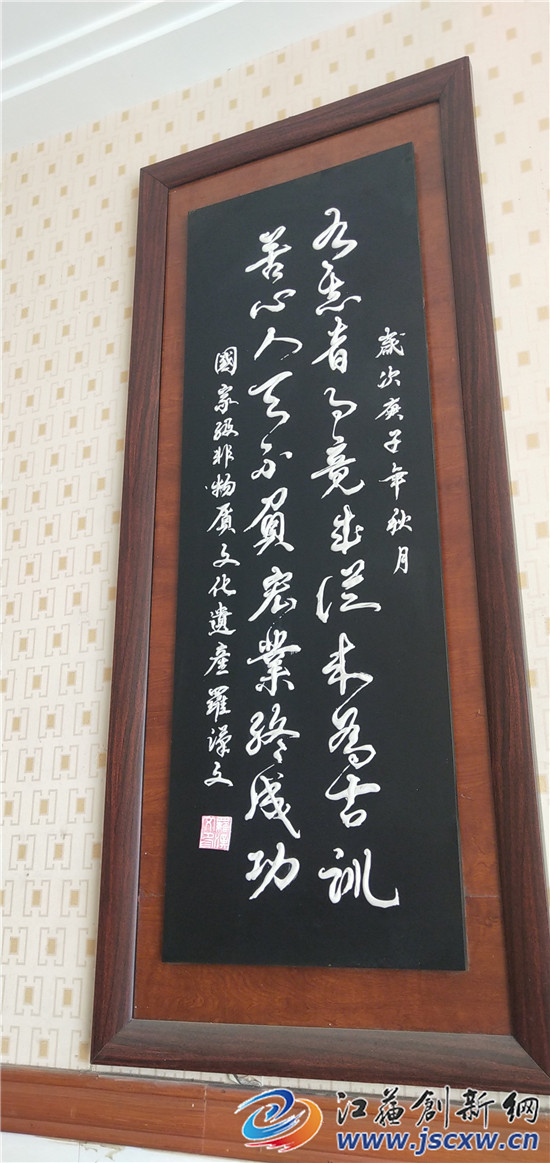 歲次庚子年秋月
有志者事竟成從来為古訓
苦心人天不負宏業終成功
國家級非物质文化遺產羅漢文
江蘇創新網
www.jscxw.cn